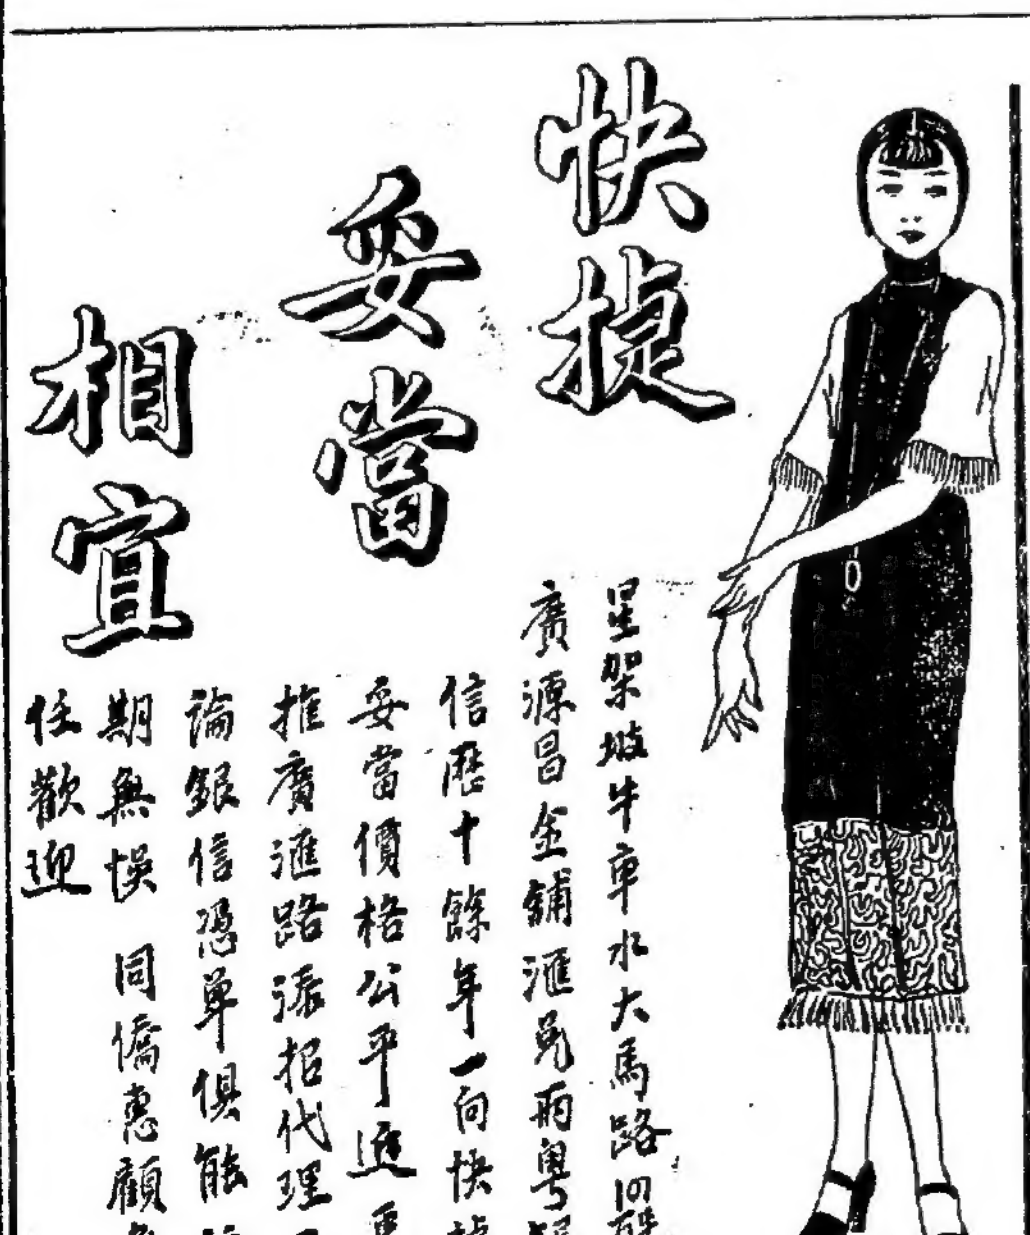 快捷
妥當
相宜
星架坡牛車水大馬路
廣源昌金舖滙兌兩粵
信歷十餘年一向快
妥當價格公平
推廣滙路添招代理
論銀信憑單俱能
期無悞 同僑惠顧
任歡迎